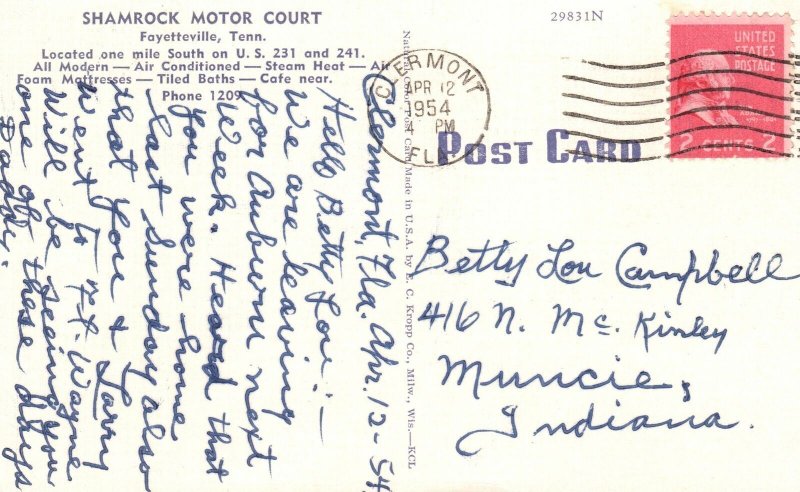 SHAMROCK MOTOR COURT
Fayetteville, Tenn.
Located one mile South on U.S. 231 and 241.
All Modern — Air Conditioned — Steam Heat — Air
Foam Mattresses — Tiled Baths — Cafe near.
Phone 1209
29831N
Clermont, Fla. Apr. 12-54
Hello Betty Lou:—
We are leaving
for Auburn next
Week. Heard that
you were home
last Sunday also
that you & Larry
went to Ft. Wayne
Will be seeing you
one of these days
Daddy.
Natural Color Post Card Made in U.S.A. by E. C. Kropp Co., Milw., Wis.—KCL
CLERMONT
APR 12
1954
4 PM
FLA.
POST CARD
UNITED
STATES
POSTAGE
2 CENTS 2
Betty Lou Campbell
416 N. Mc. Kinley
Muncie,
Indiana.